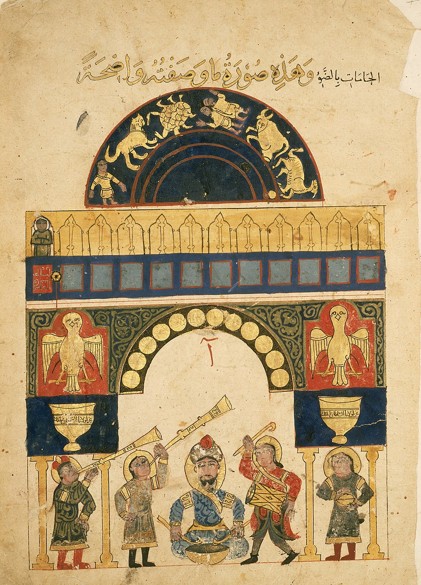 الجامات بالضو وَهَذِهِ صُورَةُ مَا وَصَفْتُهُ وَاضِحَةً